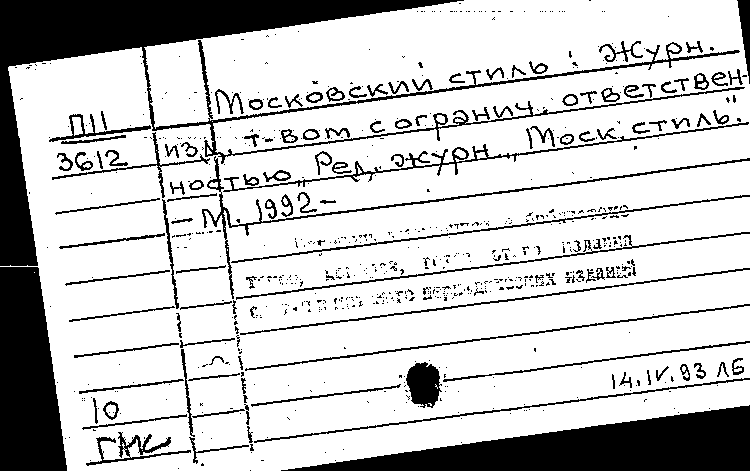 Московский стиль : Журн.
П11
изд. т-вом с огранич. ответствен-
3612
ностью „Ред. журн. „Моск. стиль".
— М., 1992 –
в библиотеке
издания
периодических изданий
14.IV.93 ЛБ
10